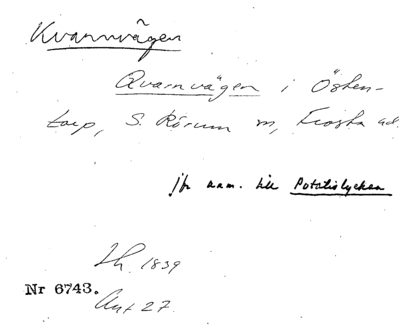 Kvarnvägen
Qvarnvägen i Östen-
torp, S. Rörum sn, Frosta hd.
jfr anm. till Potatislyckan
Lh. 1839
Nr 6743.
Akt 27.